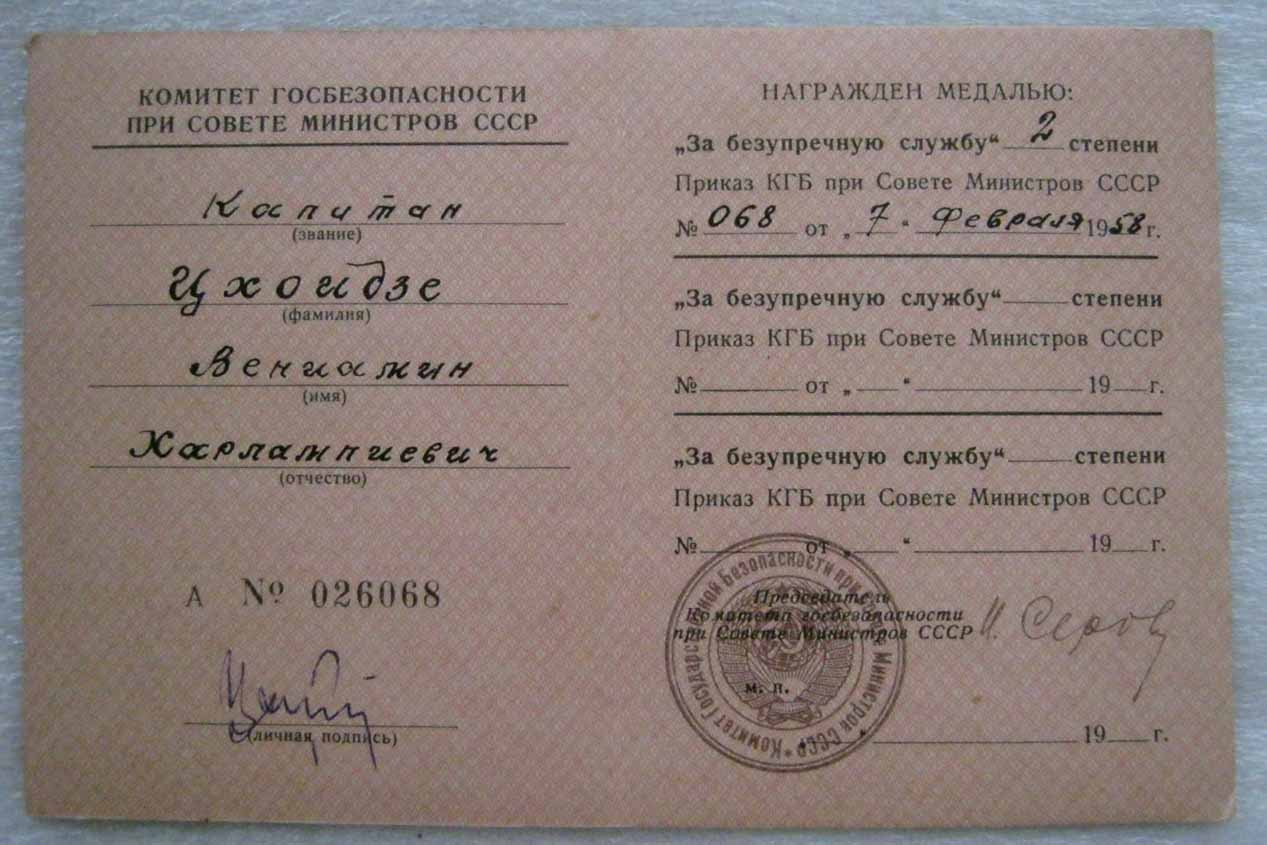 КОМИТЕТ ГОСБЕЗОПАСНОСТИ
ПРИ СОВЕТЕ МИНИСТРОВ СССР
Капитан
(звание)
Цхоидзе
(фамилия)
Вениамин
(имя)
Харлампиевич
(отчество)
А № 026068
(личная подпись)
НАГРАЖДЕН МЕДАЛЬЮ:
„За безупречную службу“ 2 степени
Приказ КГБ при Совете Министров СССР
№ 068 от „7“ февраля 1958 г.
„За безупречную службу“ степени
Приказ КГБ при Совете Министров СССР
№ от „ “ 19 г.
„За безупречную службу“ степени
Приказ КГБ при Совете Министров СССР
№ от „ “ 19 г.
Председатель
Комитета госбезопасности
при Совете Министров СССР И. Серов
м. п.
19 г.
Комитет Государственной Безопасности при Совете Министров СССР